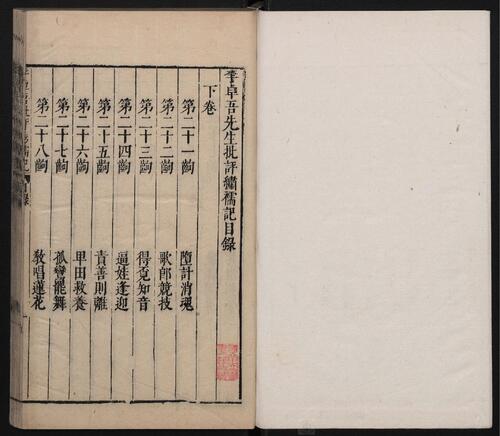 李卓吾先生批評繡襦記目錄
下卷
第二十一齣 墮計消魂
第二十二齣 歌郎競技
第二十三齣 得覓知音
第二十四齣 逼娃逢迎
第二十五齣 責善則離
第二十六齣 卑田救養
第二十七齣 孤鸞罷舞
第二十八齣 教唱蓮花